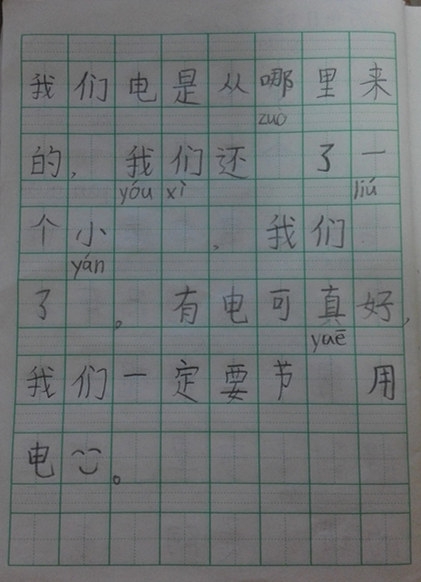 我们电是从哪里来
zuò
的，我们还 了一
yóu xì liú
个小 ，我们
yán
了 。有电可真好，
yuē
我们一定要节 用
电。